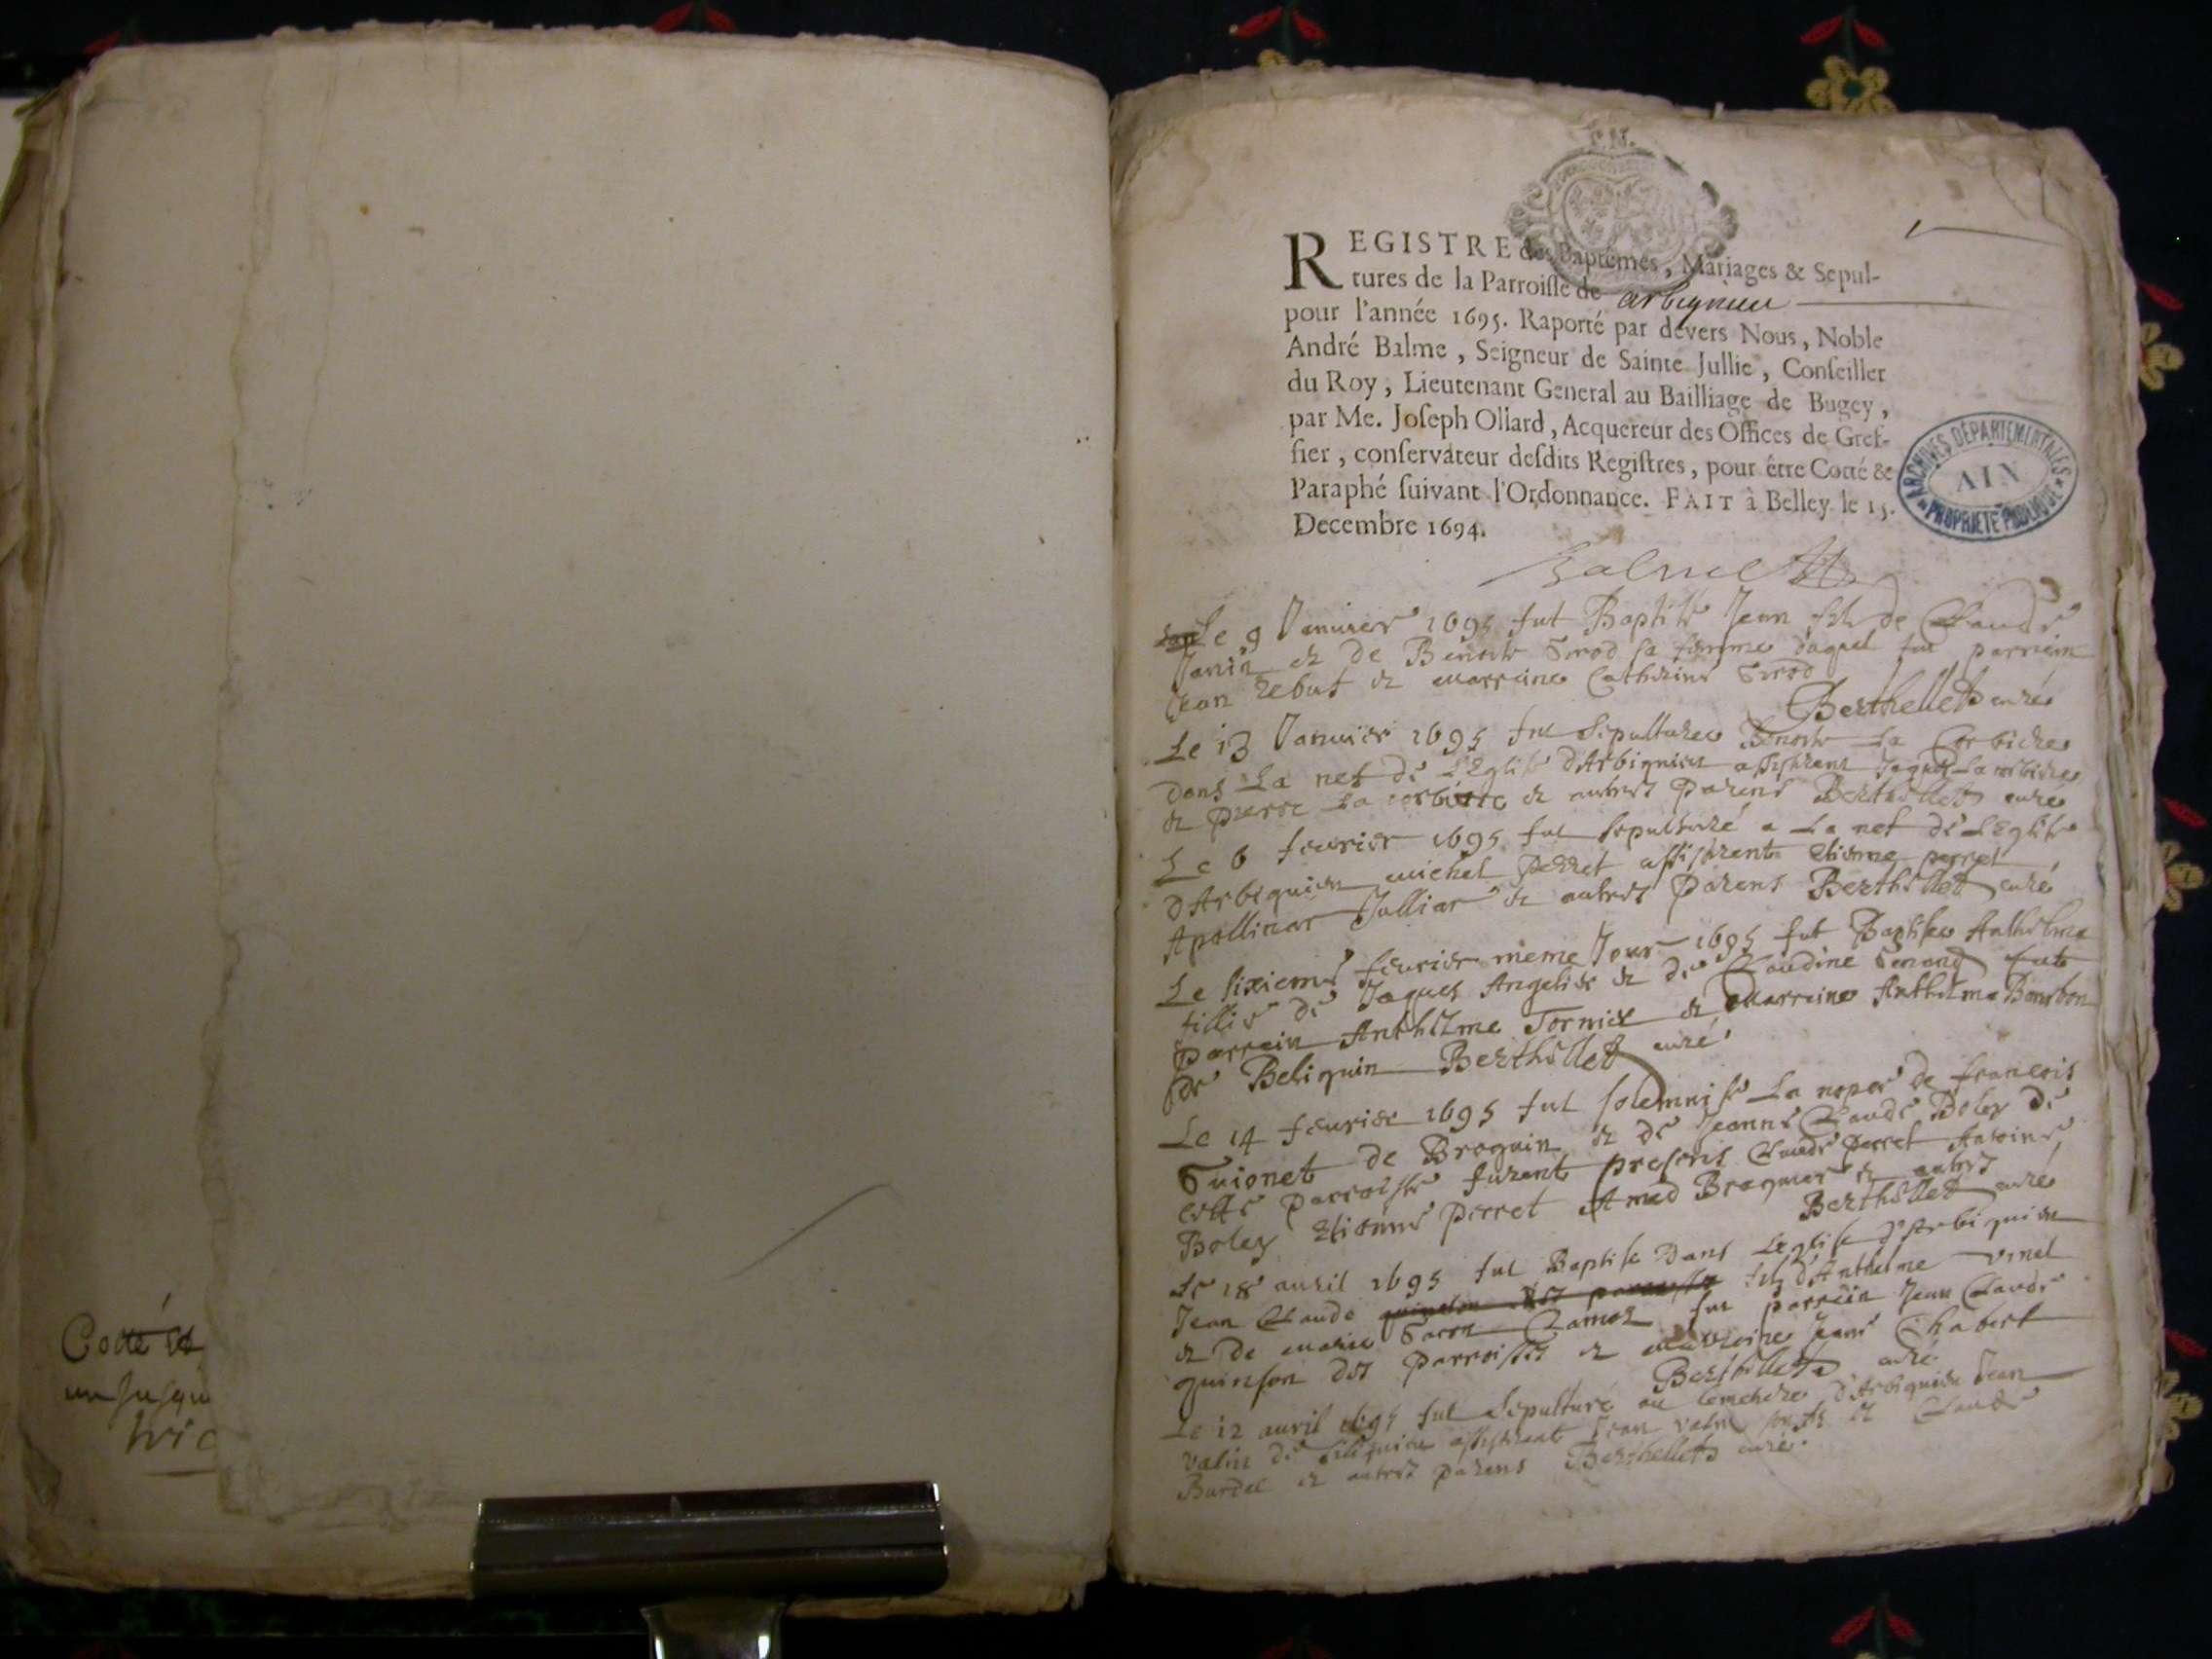 Cotté et
un jusqu
REGISTRE des Baptêmes, Mariages & Sepul-
tures de la Parroisse de Arbignieu
pour l'année 1695. Raporté par devers Nous, Noble
André Balme, Seigneur de Sainte Jullie, Conseiller
du Roy, Lieutenant General au Bailliage de Bugey,
par Me. Joseph Ollard, Acquereur des Offices de Gref-
fier, conservateur desdits Registres, pour être Cotté &
Paraphé suivant l'Ordonnance. FAIT à Belley le 15.
Decembre 1694.
ARCHIVES DÉPARTEMENTALES
AIN
PROPRIÉTÉ PUBLIQUE
Balme
Le 9 Januier 1695 fut Baptisé Jean fils de Claude
Janin et de Benoite sa femme duquel fut parrein
Jean Rebut et marreine Catherine
Berthellet curé
Le 13 Januier 1695 fut sepulturée Benoite La Corbiere
dans La nef de L'Eglise d'Arbignieu assistrent Jaques La corbiere
et pierre La corbiere et autres parens Berthellet curé
Le 6 feurier 1695 fut sepulturé a La nef de L'Eglise
d'Arbignieu michel Perret assistrent Etienne perret
Apollinar Julliar et autres parens Berthellet curé
Le sixieme feurier meme Jour 1695 fut Baptisée Anthelma
fillie de Jaques Angelier et de Claudine fut
parrein Anthelme Tornier et Marreine Anthelma Bourbon
de Beliguin Berthellet curé
Le 14 feurier 1695 fut solemnise La nopce de francois
Guionet de Brognin et de Jeanne Claude Boley de
cette parroisse furent presens Claude perret Antoine
Boley Etienne perret Amed Braymar et autres
Berthellet curé
Le 18 auril 1695 fut Baptise dans Leglise d'Arbignieu
Jean Claude fils d'Anthelme vinet
et de marie fut parrein Jean Claude
quinson des parroisses et marreine Jeane Chabert
Berthellet curé
Le 12 auril 1695 fut sepulturé au cemetiere d'Arbignieu Jean
valin de assistrent Jean valin son fils et Claude
Burdet et autres parens Berthellet curé